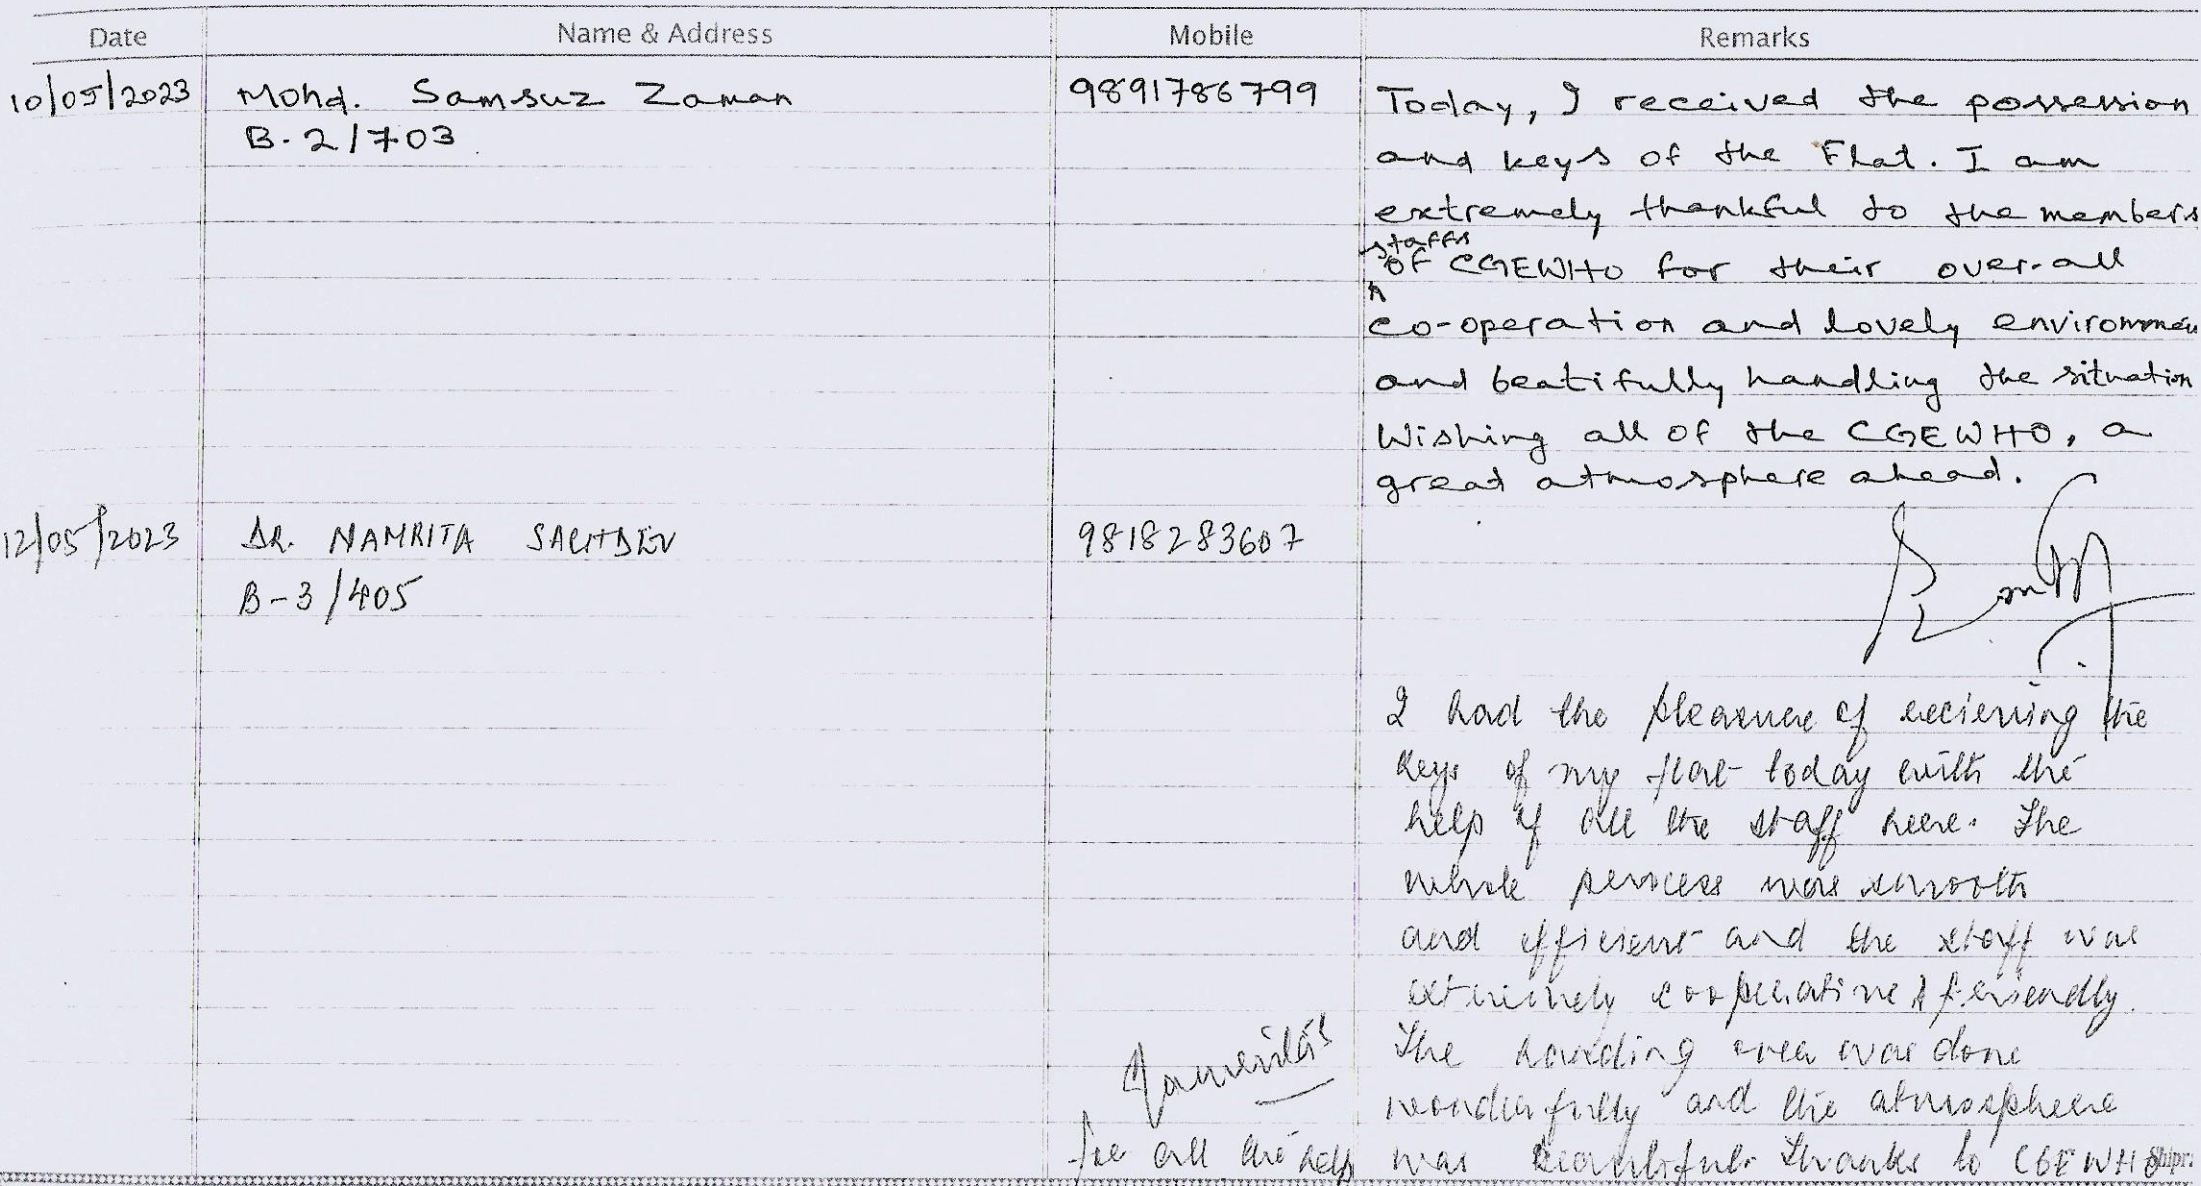 Date Name & Address Mobile Remarks
10/05/2023 Mohd. Samsuz Zaman 9891786799 Today, I received the possession
B-2/703 and keys of the Flat. I am
extremely thankful to the members
staffs
of CGEWHO for their over-all
co-operation and lovely environmen
and beatifully handling the situation
Wishing all of the CGEWHO, a
great atmosphere ahead.
12/05/2023 DR. NAMRITA SACHDEV 9818283607
B-3/405
I had the pleasure of recieving the
keys of my flat today with the
help of all the staff here. The
whole process was smooth
and efficient and the staff was
extremely cooperative & friendly.
The handing over was done
wonderfully and the atmosphere
was beautiful. Thanks to CGEWHO
for all the help
Namrita